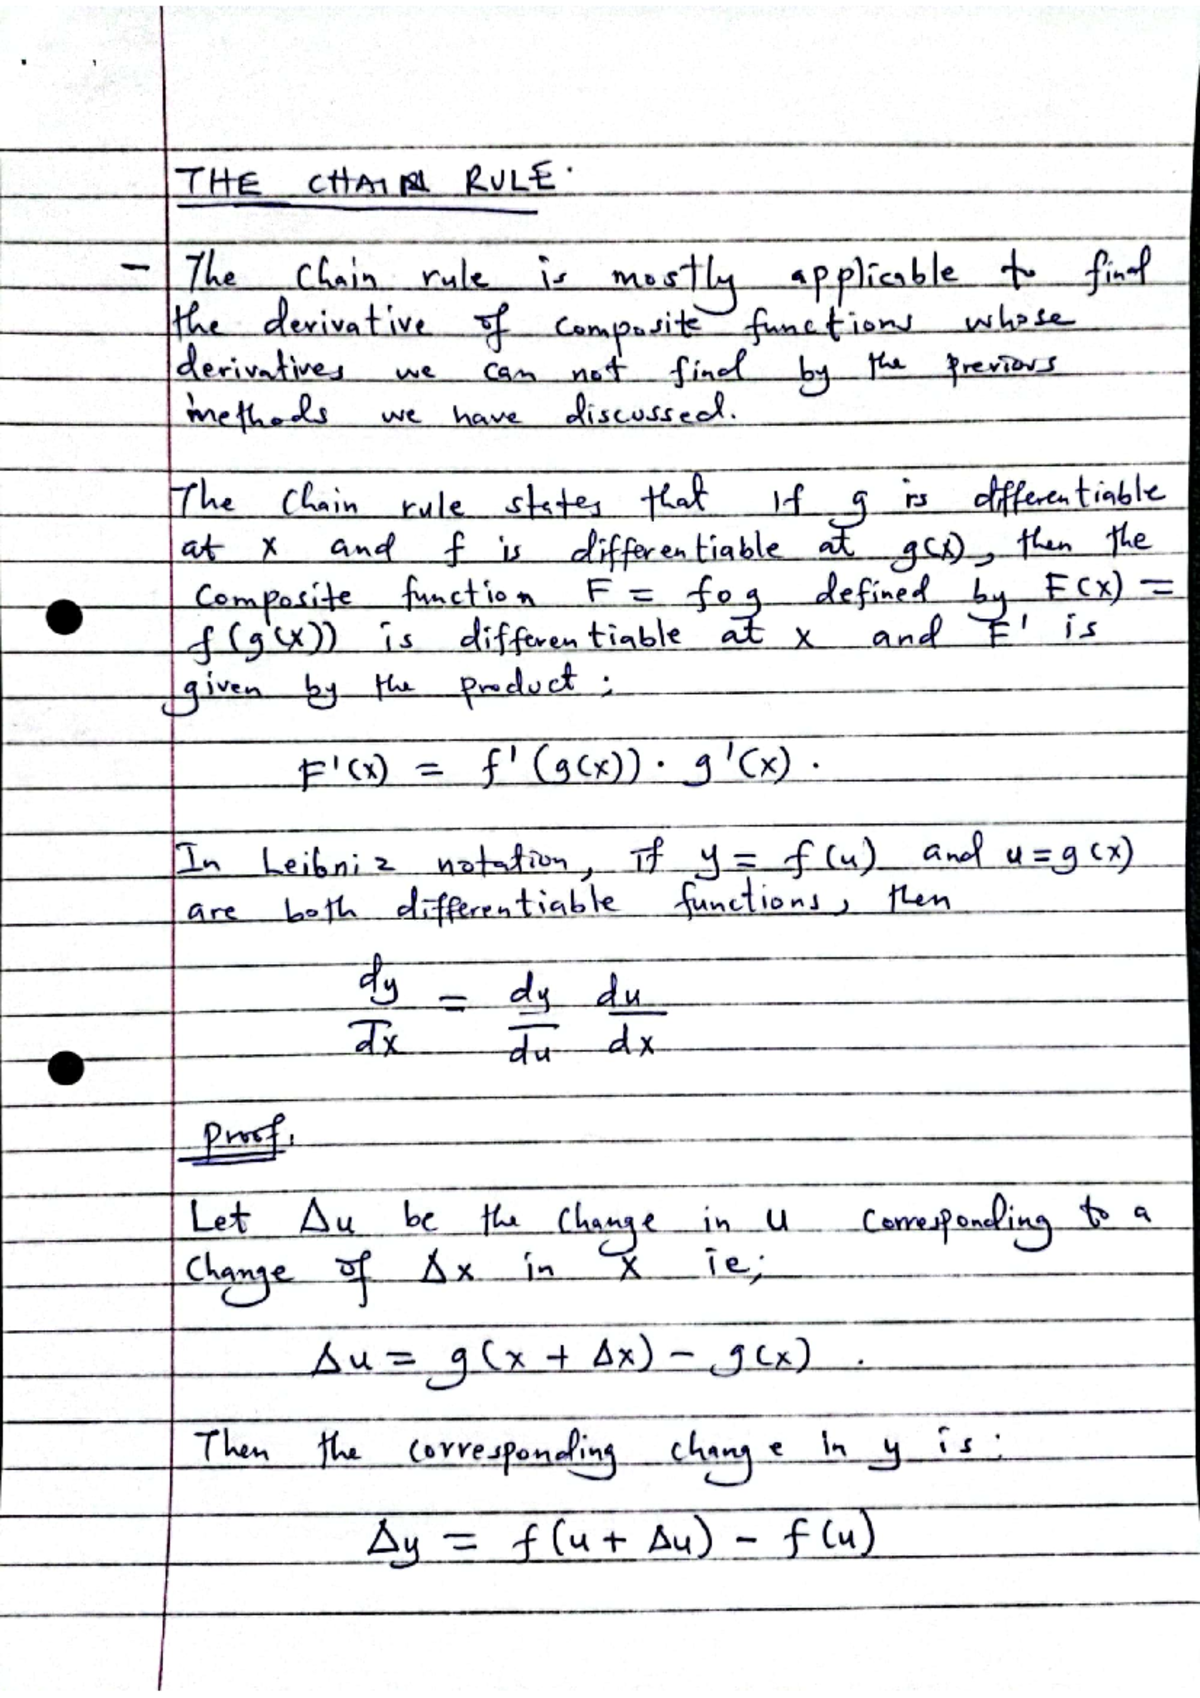 THE CHAIN RULE.
- The Chain rule is mostly applicable to find
the derivative of composite functions whose
derivatives we can not find by the previous
methods we have discussed.
The Chain rule states that If g is differentiable
at x and f is differentiable at g(x), then the
Composite function F = fog defined by F(x) =
f(g(x)) is differentiable at x and F' is
given by the product;
F'(x) = f'(g(x)) · g'(x).
In Leibniz notation, if y = f(u) and u = g(x)
are both differentiable functions, then
dy/dx = dy/du du/dx
Proof.
Let Δu be the change in u corresponding to a
change of Δx in x ie;
Δu = g(x + Δx) - g(x).
Then the corresponding change in y is:
Δy = f(u + Δu) - f(u)